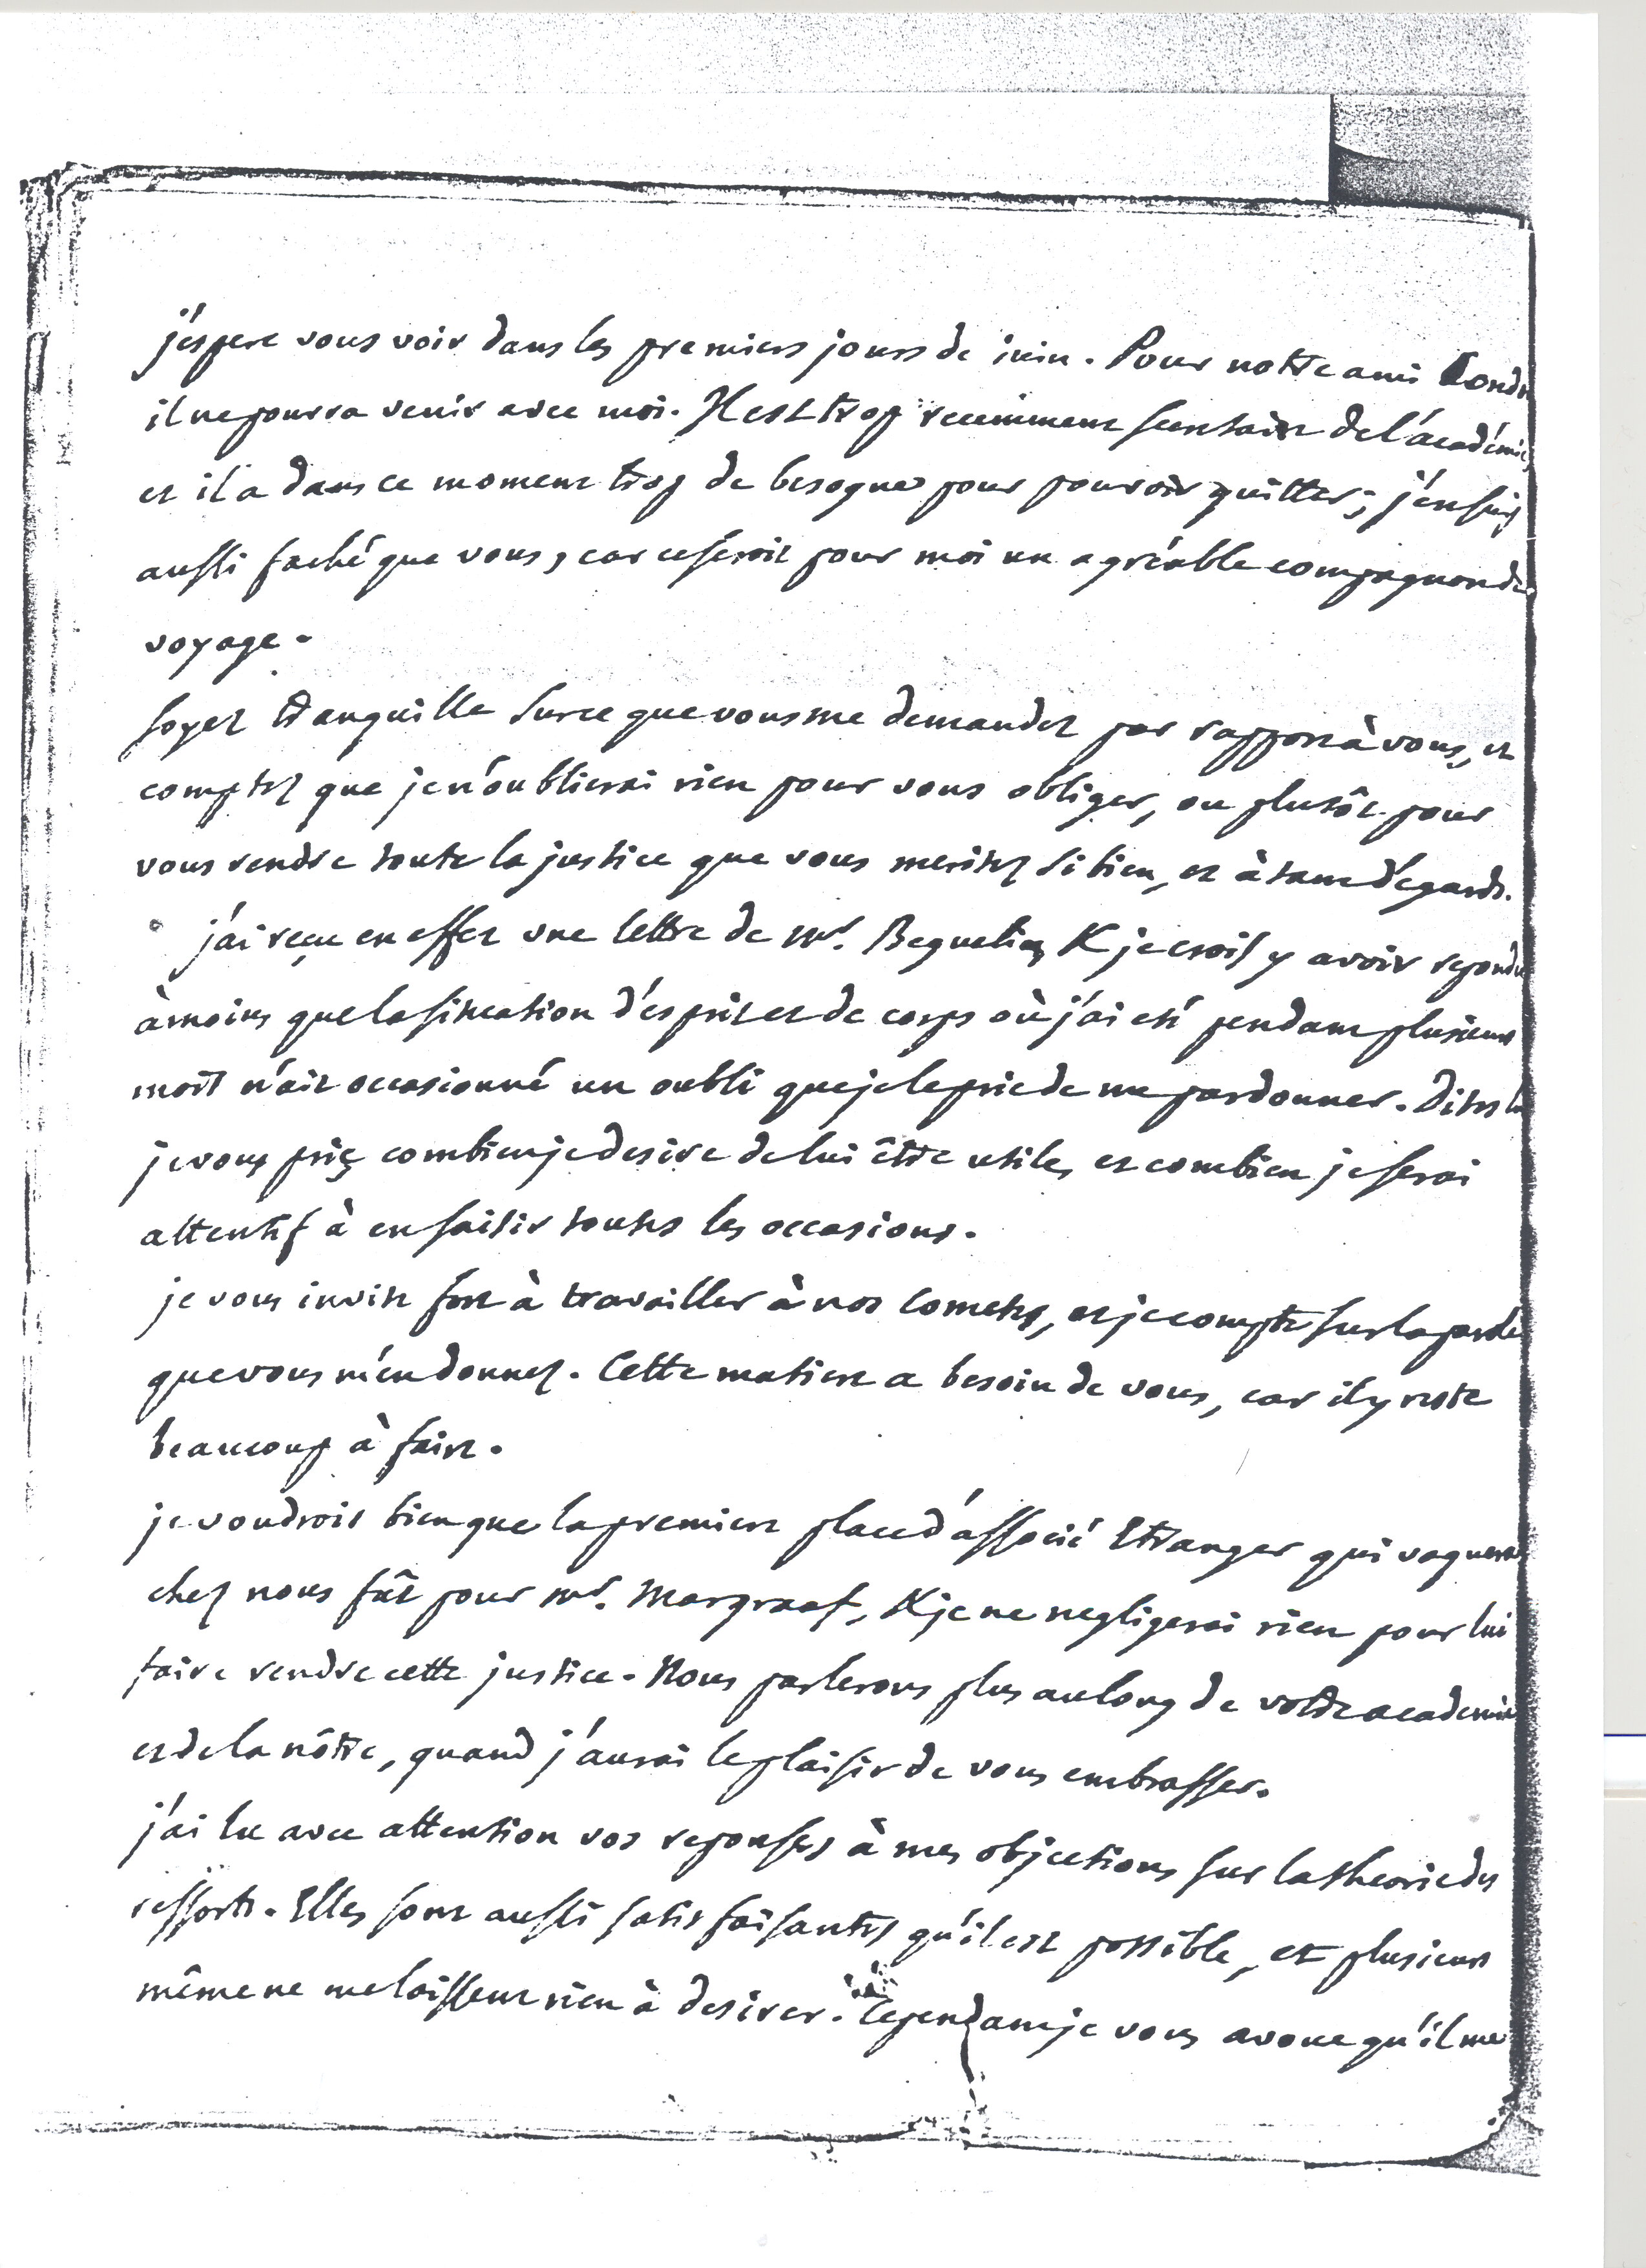 j'espere vous voir dans les premiers jours de juin. Pour notre ami Cond
il ne pourra venir avec moi. Il est trop recemment secretaire de l'académie,
et il a dans ce moment trop de besogne pour pouvoir quitter; j'en suis
aussi faché que vous, car ce seroit pour moi un agréable compagnon de
voyage.
soyez tranquille sur ce que vous me demandez par rapport à vous, et
comptez que je n'oublierai rien pour vous obliger, ou plutôt pour
vous rendre toute la justice que vous meritez si bien, et à tant d'egards.
j'ai reçu en effet une lettre de Mr. Beguelin, & je crois y avoir repondu
à moins que la situation d'esprit et de corps où j'ai été pendant plusieurs
mois n'ait occasionné un oubli que je le prie de me pardonner. Dites lui
je vous prie, combien je desire de lui être utile, et combien je serai
attentif à en saisir toutes les occasions.
je vous invite fort à travailler à nos Cometes, et je compte sur la parole
que vous m'en donnez. Cette matiere a besoin de vous, car il y reste
beaucoup à faire.
je voudrois bien que la premiere place d'associé Etranger qui vaquera
chez nous fût pour Mr. Margraaf, & je ne negligerai rien pour lui
faire rendre cette justice. Nous parlerons plus au long de votre academie
et de la nôtre, quand j'aurai le plaisir de vous embrasser.
j'ai lu avec attention vos reponses à mes objections sur la theorie des
ressorts. Elles sont aussi satisfaisantes qu'il est possible, et plusieurs
même ne me laissent rien à desirer. Cependant je vous avoue qu'il me